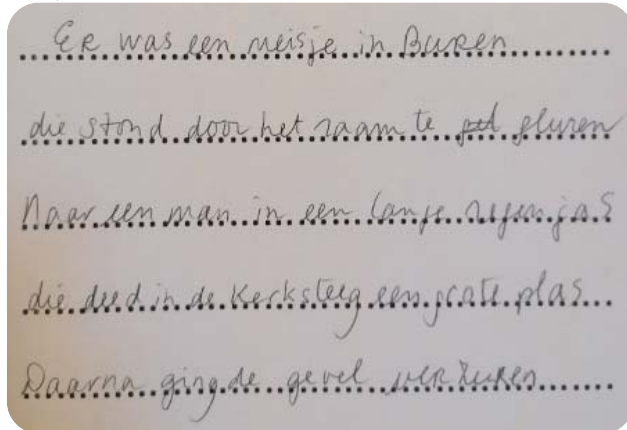 ER was een meisje in Buren
die stond door het raam te gluren
Naar een man in een lange regenjas
die deed in de Kerksteeg een grote plas
Daarna ging de gevel verzuren